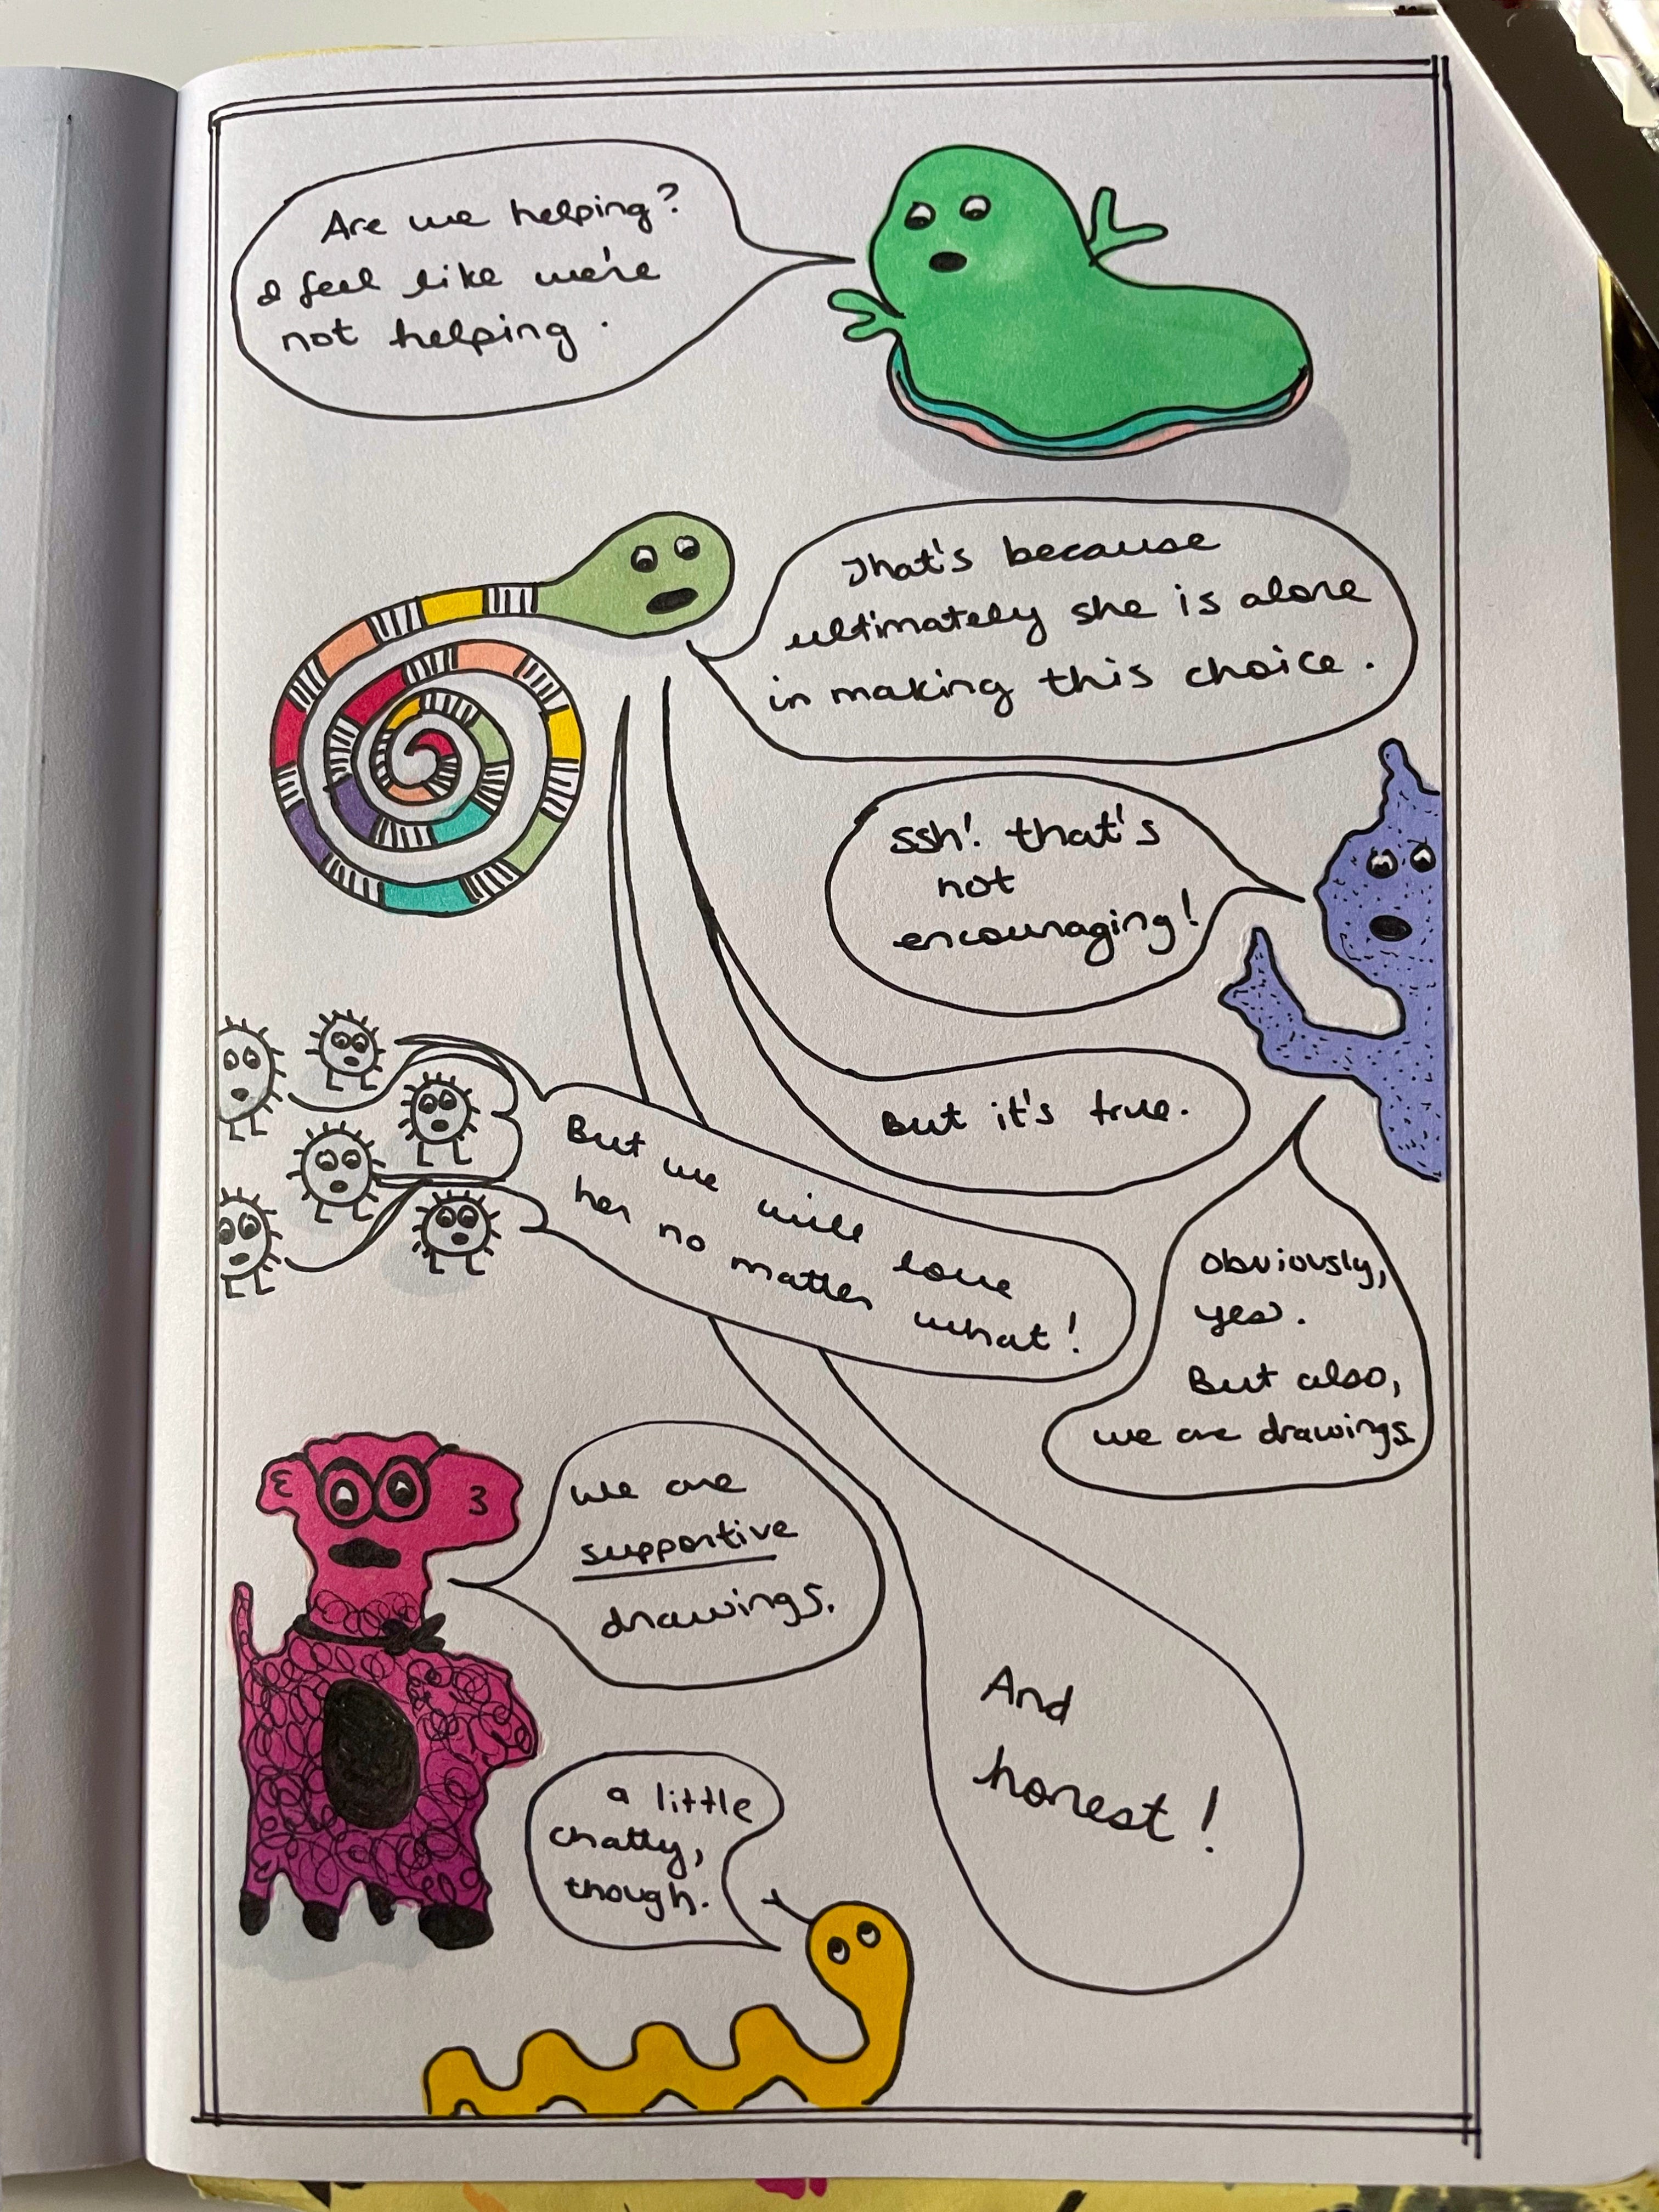 Are we helping?
I feel like we're
not helping.
That's because
ultimately she is alone
in making this choice.
ssh! that's
not
encouraging!
But it's true.
But we will love
her no matter what!
Obviously,
yes.
But also,
we are drawings
we are
supportive
drawings.
And
honest!
a little
chatty,
though.